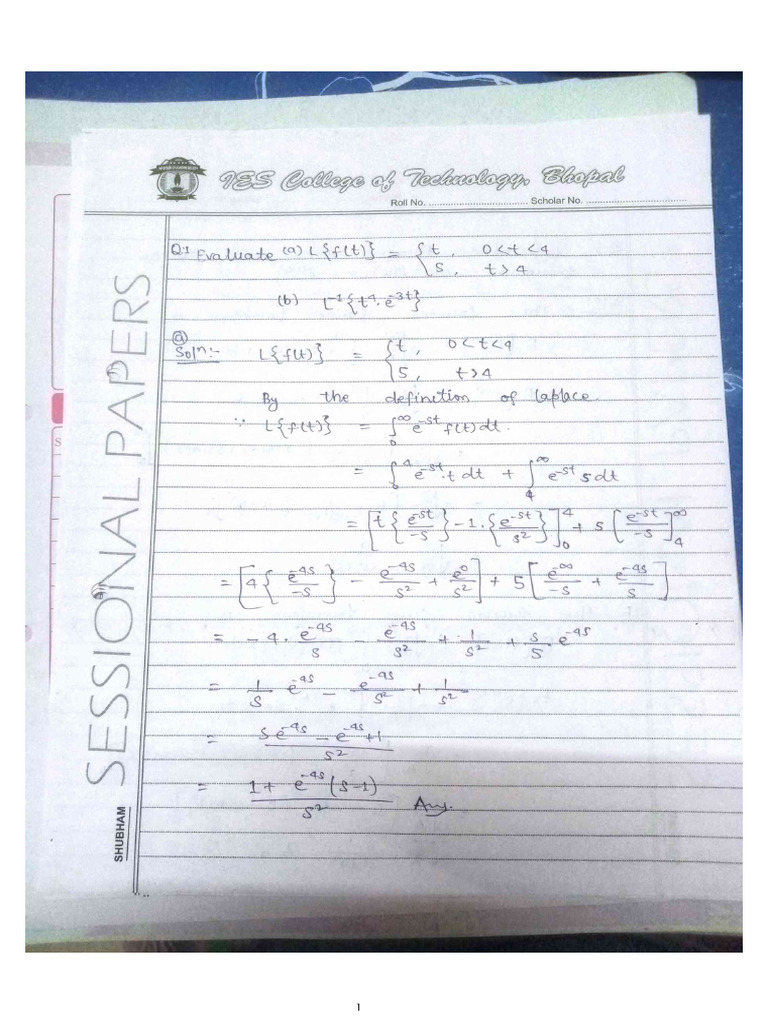 IES College of Technology, Bhopal
Roll No. ................................ Scholar No. ................................
SESSIONAL PAPERS
SHUBHAM
Q.1 Evaluate (a) L{f(t)} = { t, 0<t<4
5, t>4
(b) L⁻¹{t⁴. e⁻³ᵗ}
(a)
Solⁿ:- L{f(t)} = { t, 0<t<4
5, t>4
By the definetion of laplace.
∵ L{f(t)} = ∫₀^∞ e^-st f(t) dt.
= ∫₀^4 e^-st. t dt + ∫₄^∞ e^-st 5 dt
= [t{e^-st/-s} - 1.{e^-st/s²}]₀^4 + 5[e^-st/-s]₄^∞
= [4{e^-4s/-s} - e^-4s/s² + e^0/s²] + 5[e^-∞/-s + e^-4s/s]
= -4. e^-4s/s - e^-4s/s² + 1/s² + s/5 e^-4s
= 1/s e^-4s - e^-4s/s² + 1/s²
= (s e^-4s - e^-4s + 1)/s²
= (1 + e^-4s (s-1))/s² Ans.
1